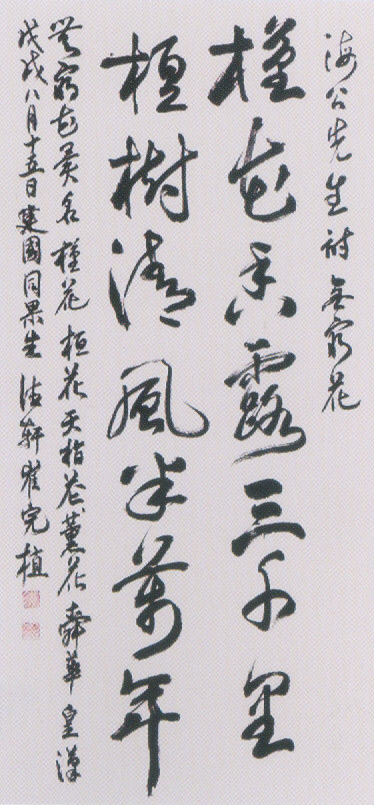 海公先生詩 無窮花
槿花香露三千里
桓樹清風半萬年
無窮花異名 槿花 桓花 天指花 薰花 舜華 皇漢
戊戌八月十五日建國同果生 法軒 崔完植